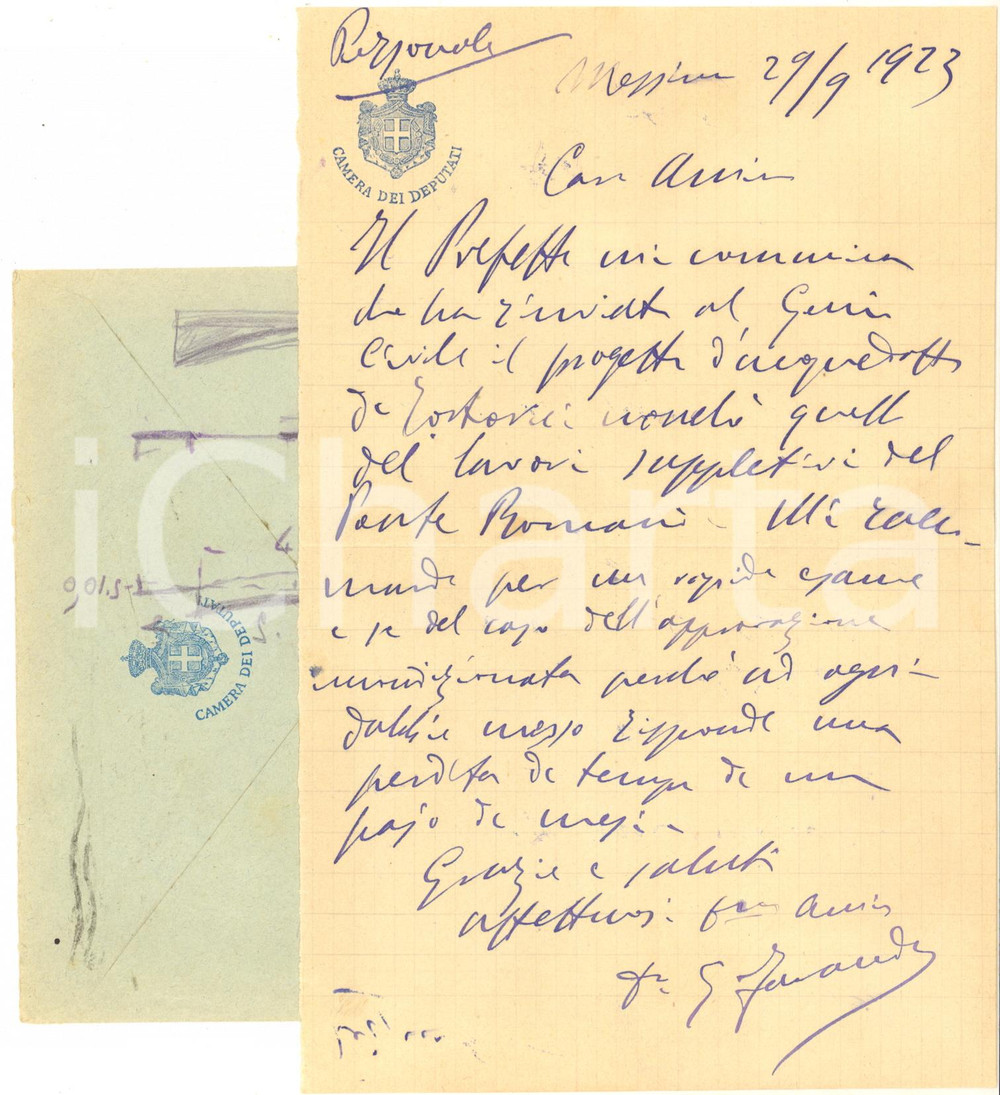 Personale
Messina 29/9 1923
CAMERA DEI DEPUTATI
Caro Amico
Il Prefetto mi comunica
che ha rinviato al Genio
Civile il progetto d'acquedotto
di Tortorici nonché quello
dei lavori suppletivi del
Ponte Romano. Mi racco-
mando per un rapido esame
e se del caso dell'approvazione
incondizionata perché ad ogni
dubbio mosso risponde una
perdita di tempo di un
pajo di mesi.
Grazie e saluti
affettuosi Amico
CAMERA DEI DEPUTATI
iCharta